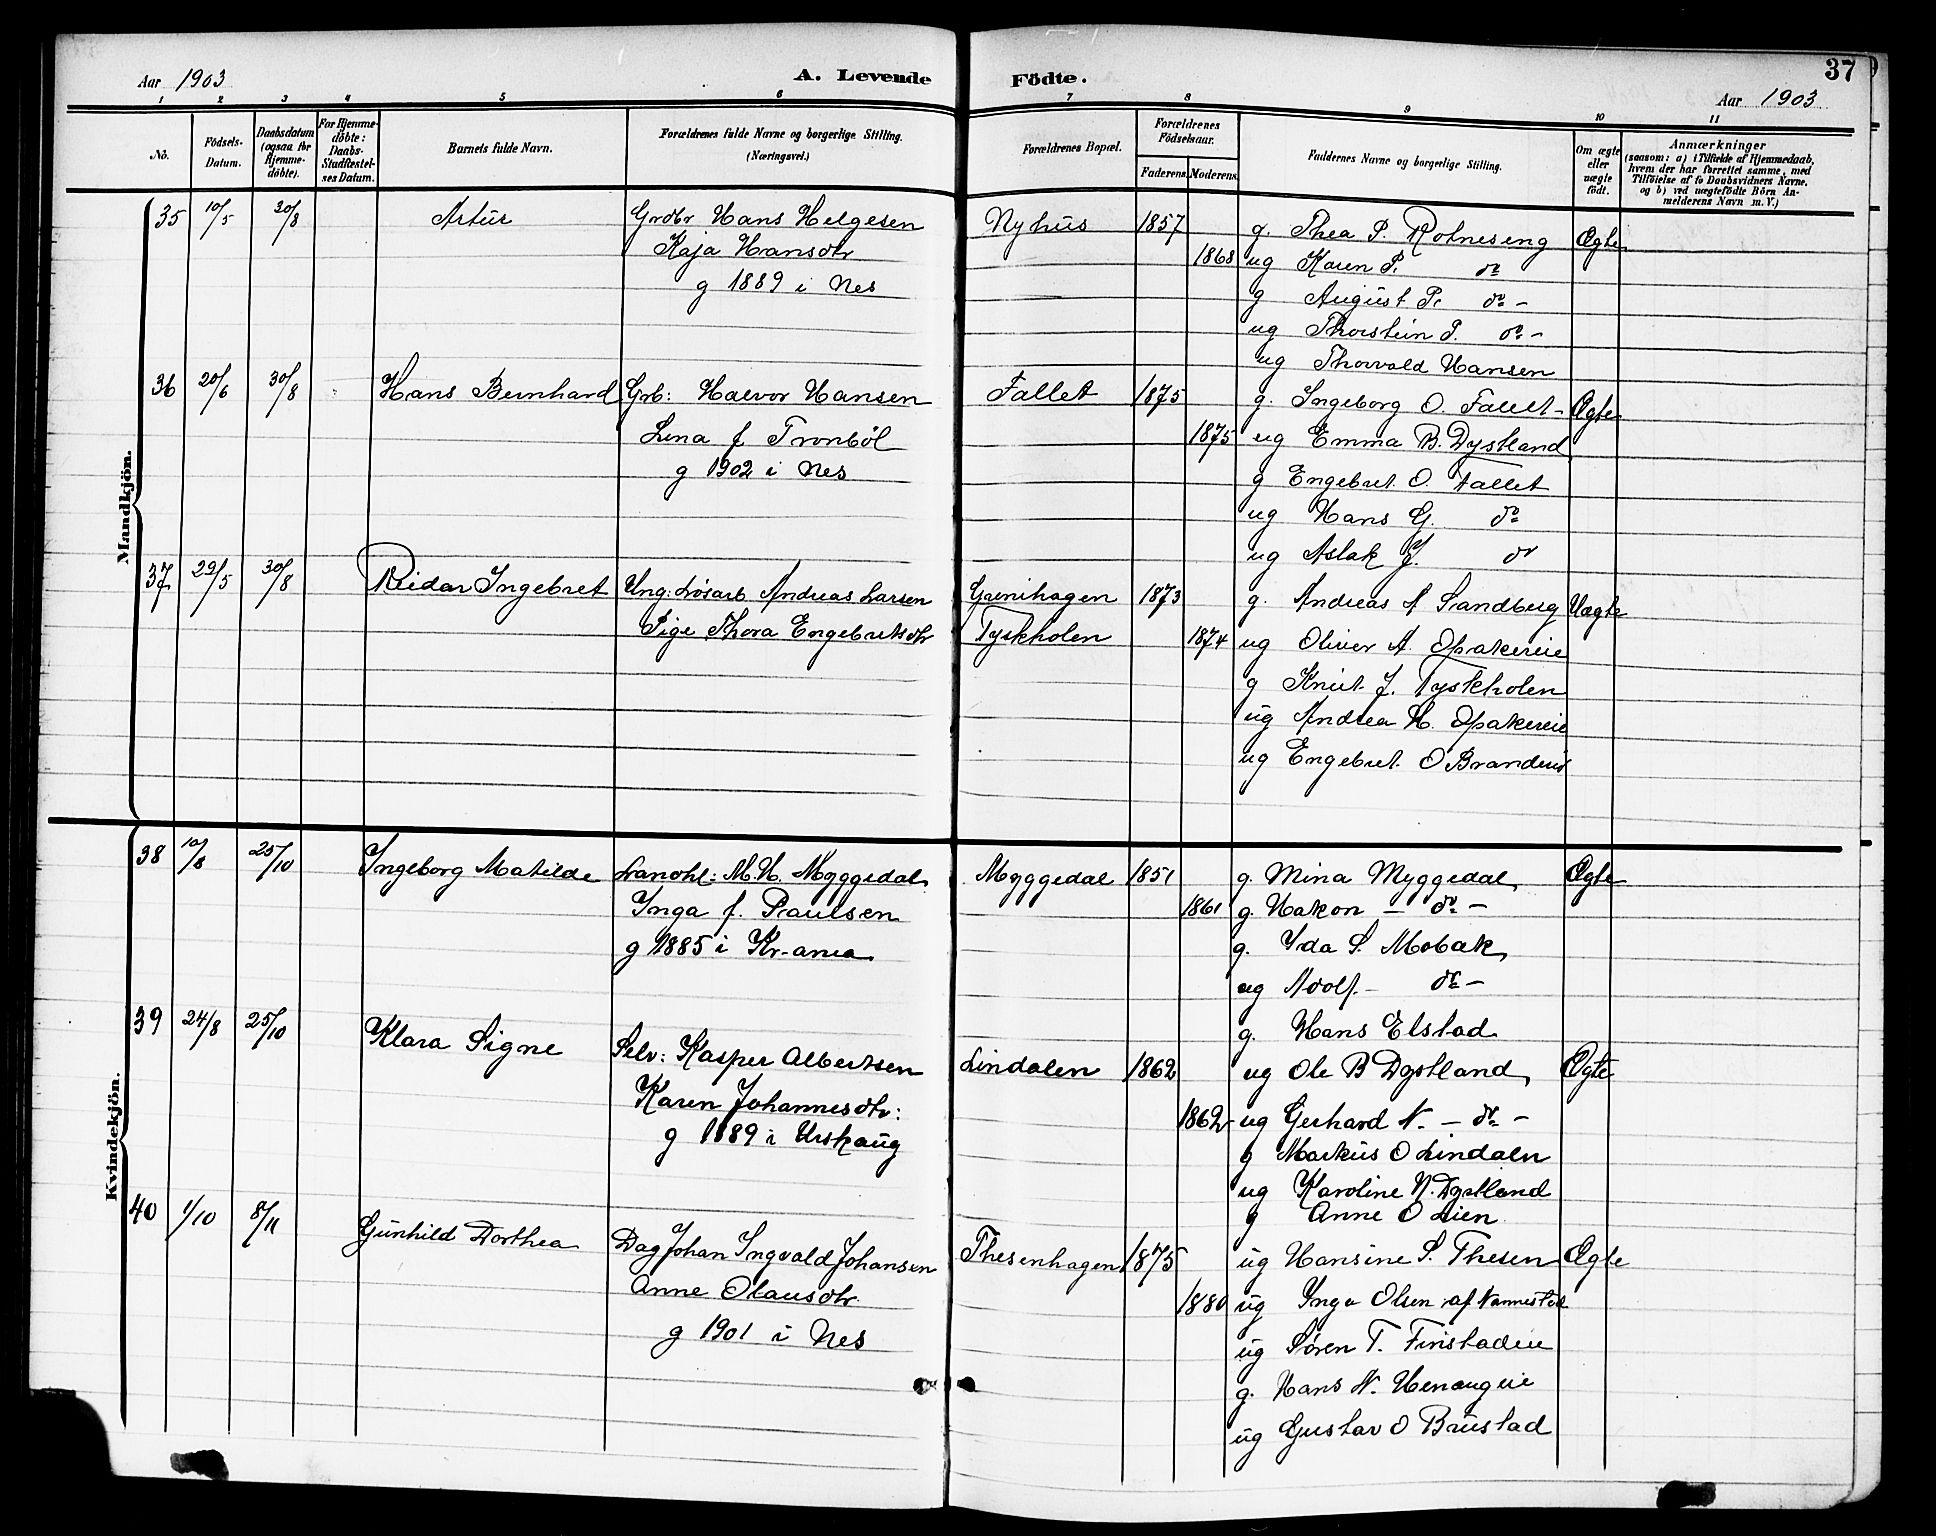 Aar 1903
A. Levende Födte.
37
Aar 1903
1 2 3 4 5 6 7 8 9 10 11
No.
Födsels-
Datum.
Daabsdatum
(ogsaa for
Hjemme-
döbte).
For Hjemme-
döbte:
Daabs-
Stadfæstel-
ses Datum.
Barnets fulde Navn.
Forældrenes fulde Navne og borgerlige Stilling.
(Næringsvei.)
Forældrenes Bopæl.
Forældrenes
Födselsaar.
Faderens.
Moderens.
Faddernes Navne og borgerlige Stilling.
Om ægte
eller
uægte
födt.
Anmærkninger
(saasom: a) i Tilfælde af Hjemmedaab,
hvem der har forrettet samme, med
Tilföielse af to Daabsvidners Navne,
og b) ved uægtefödte Börn An-
melderens Navn m. V.)
Mandkjön.
35 10/5 30/8 Artur Grdbr Hans Helgesen Nyhus 1857 g. Thea P. Rotneseng Ægte
Kaja Hansdtr 1868 ug Karen P. do
g 1889 i Nes g August P. do -
ug Thorstein P. do -
ug Thorvald Hansen
36 20/6 30/8 Hans Bernhard Grb: Halvor Hansen Fallet 1875 g. Ingeborg O. Fallet - Ægte
Lina f Tronböl 1875 ug Emma B. Dystland
g 1902 i Nes g Engebret O. Fallet
ug Hans G. do
ug Aslak J. do
37 29/5 30/8 Reidar Ingebret Ung: Løsarb Andreas Larsen Grinihagen 1873 g. Andreas A Sandberg Uægte
Pige Thora Engebretsdtr Tyskholen 1874 ug Oliver A. Opakereie
g Knut J. Tyskholen
ug Andrea H. Opakereie
ug Engebret O Brandrud
Kvindekjön.
38 10/8 25/10 Ingeborg Matilde Landhl: M. H. Myggedal Myggedal 1851 g. Mina Myggedal Ægte
Inga f. Paulsen 1861 g. Hakon - do -
g 1885 i Kr-ania g. Ida S. Mobæk
ug Adolf - do -
g. Hans Elstad
39 24/8 25/10 Klara Signe Selv: Kasper Albertsen Lindalen 1862 ug Ole B Dystland Ægte
Karen Johannesdtr: 1862 ug Gerhard N. - do -
g 1889 i Urskaug g Markus O Lindalen
ug Karoline N. Dystland
g Anne O Lien
40 1/10 8/11 Gunhild Dorthea Dag Johan Ingvald Johansen Thesenhagen 1875 ug Hansine S. Thesen Ægte
Anne Olausdtr 1880 ug Inga Olsen af Nannestad
g 1901 i Nes ug Søren T. Finstadeie
g. Hans N. Henaugeie
ug Gustav O Brustad